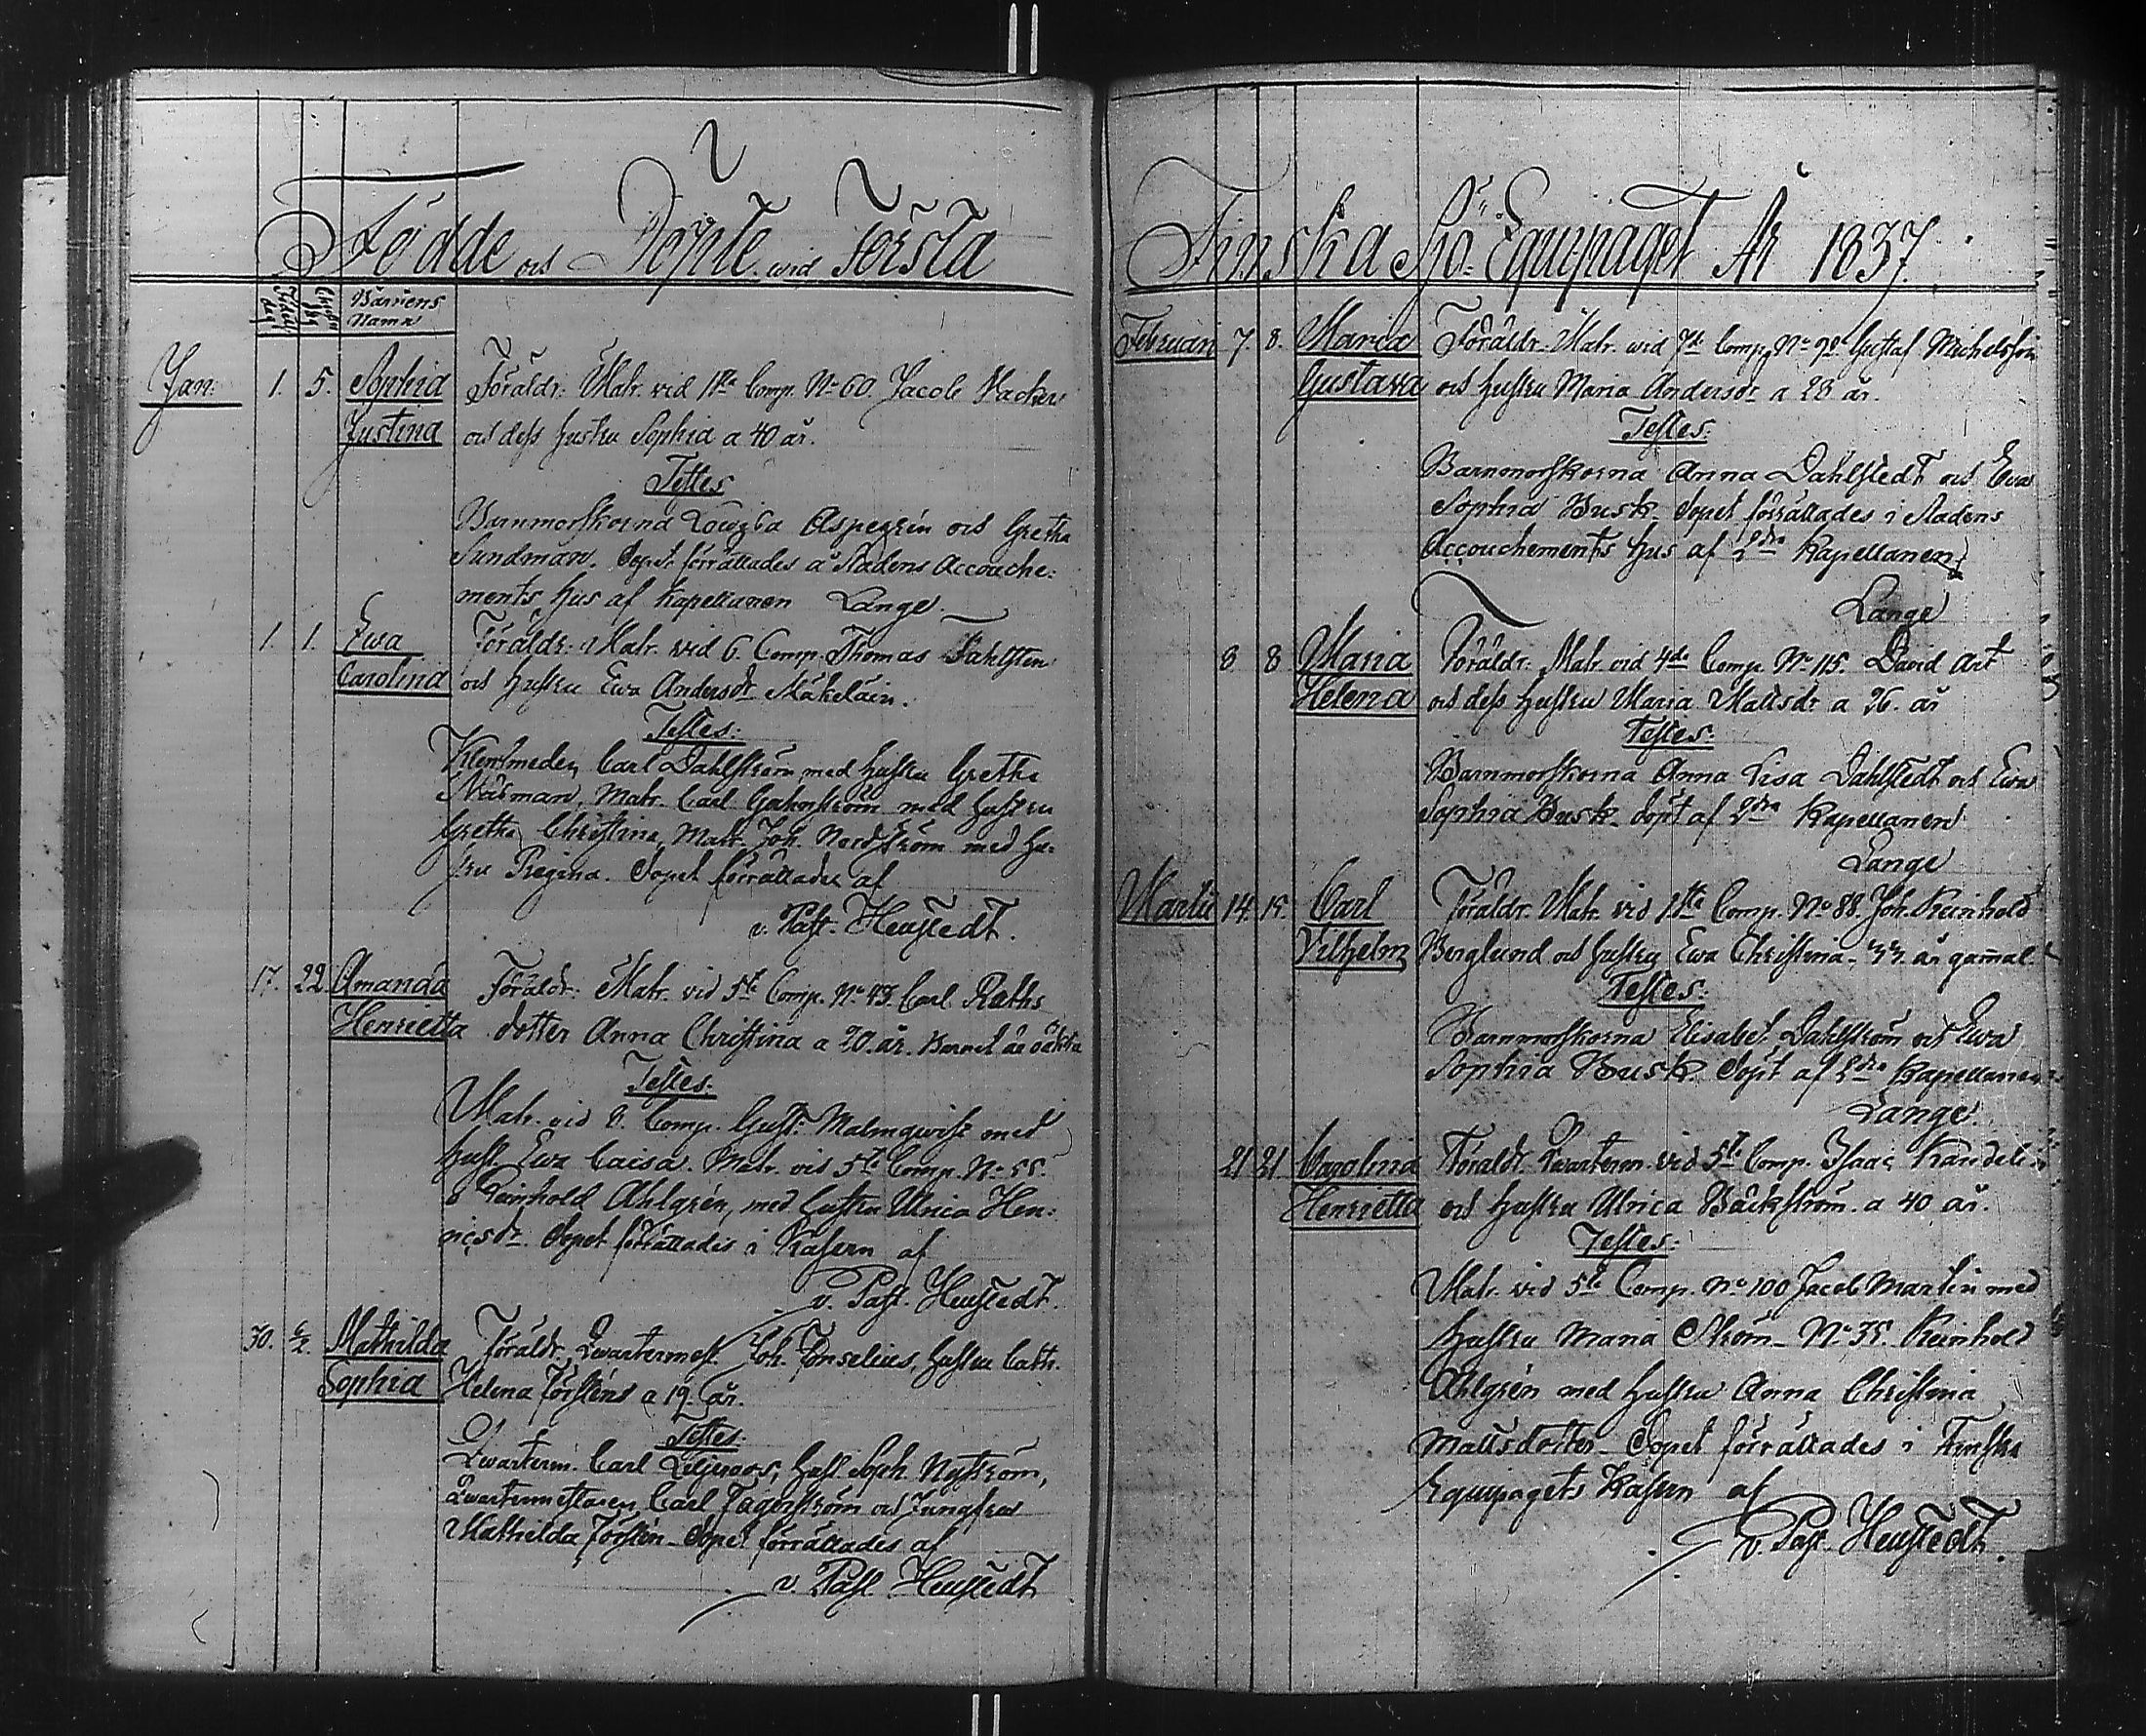 Födde och Döpte wid Första
Födelse dag
Christn. dag
Barnens
Namn
Jan: 1. 5. Sophia Föräldr: Matr. vid 1sta Comp. No 60. Jacob Vacker
Justina och dess hustru Sophia a 40 år.
Testes
Barnmorskorna Lowisa Aspegrén och Gretha
Sundman. Dopet förrättades å Stadens Accouche:
ments hus af Kapellanen Lange.
1. 1. Ewa Föräldr: Matr. wid 6. Comp. Thomas Fahlsten
Carolina och hustru Ewa Andersdr Mäkeläin.
Testes:
Klensmeden Carl Dahlström med hustru Gretha
Näsman, Matr. Carl Gahnström med hustru
Gretha Christina, Matr. Joh. Nordström med hu:
stru Regina. Dopet förrättades af
v. Past. Heustedt.
17. 22. Amanda Föräldr: Matr. vid 5te Comp. No 43. Carl Raths
Henrietta dotter Anna Christina a 20. år. Barnet är oäkta
Testes:
Matr. vid 8. Comp. Gust: Malmqwist med
hust. Ewa Caisa. Matr. vid 5te Comp. No 55.
Reinhold Ahlgrén, med hustru Ulrica Hen:
ricsdr. Dopet förrättades i Kasern af
v. Past. Heustedt.
30. Mathilda Föräldr. Qvartermest. Joh. Fonselius, hustru Cath.
Sophia Helena Törsténs a 19. år.
Testes:
Qvarterm. Carl Liljeroos, hust. Soph. Nyström,
Qvartermestaren Carl Fagerström och Jungfru
Mathilda Törstén. Dopet förrättades af
v. Past. Heustedt
Finska Sjö-Equipaget År 1837.
Februari 7. 8. Maria Föräldr. Matr. wid 7de Comp. No 98. Gustaf Michelsson
Gustava och hustru Maria Andersdr a 28 år.
Testes:
Barnmorskorna Anna Dahlstedt och Ewa
Sophia Busk. Dopet förrättades i Stadens
Accouchements hus af 2dra Kapellanen
Lange
8 8 Maria Föräldr. Matr. vid 4de Comp. No 115. David Art
Helena och dess hustru Maria Mattsdr a 26. år
Testes:
Barnmorskorna Anna Lisa Dahlstedt och Ewa
Sophia Busk. Döpt af 2dra Kapellanen
Lange
Martii 14. 15. Carl Föräldr. Matr. vid 1sta Comp. No 88. Joh. Reinhold
Vilhelm Berglund och hustru Ewa Christina, 33 år gam̄al
Testes:
Barnmorskorna Elisabet Dahlström och Ewa
Sophia Busk. Döpt af 2dra Kapellanen
Lange.
21 21 Carolina Föräldr. Qvarterm. vid 5te Comp. Isaac Kandelin
Henrietta och hustru Ulrica Bäckström. a 40 år.
Testes:
Matr. vid 5te Comp. No 100 Jacob Martin med
hustru Maria Ström. No 35. Reinhold
Ahlgrén med hustru Anna Christina
Mattsdotter. Dopet förrättades i Finska
Equipagets Kasern af
v. Past. Heustedt.